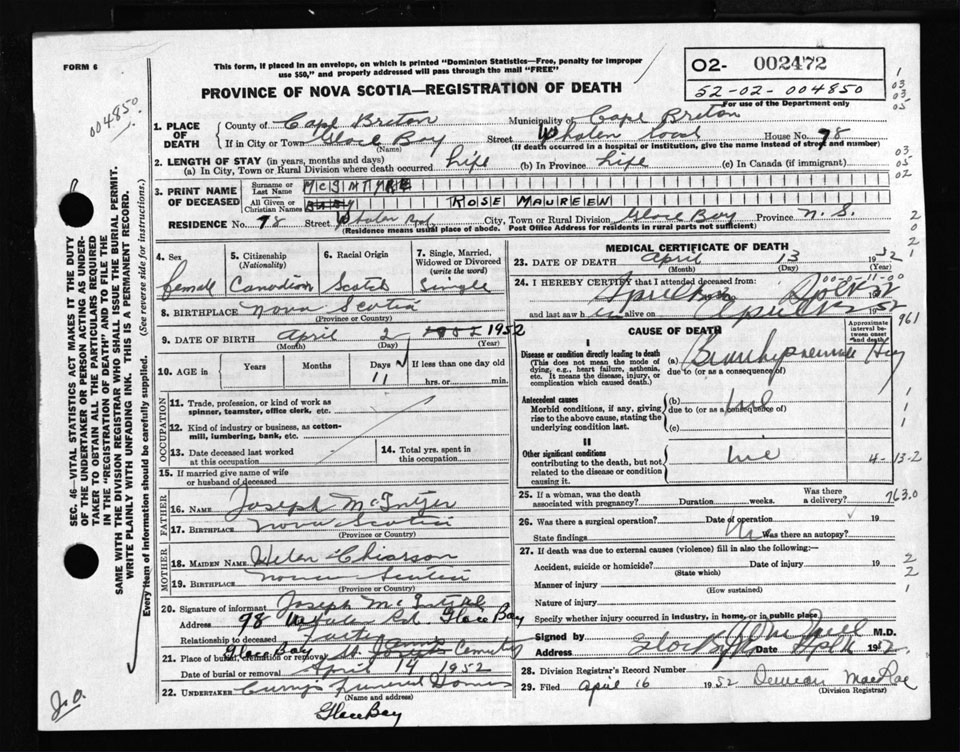 FORM 6
This form, if placed in an envelope, on which is printed "Dominion Statistics—Free, penalty for improper
use $50," and properly addressed will pass through the mail "FREE"
O2- 002472
52-02-004850
For use of the Department only
004850
PROVINCE OF NOVA SCOTIA—REGISTRATION OF DEATH
1. PLACE OF DEATH
County of Cape Breton Municipality of Cape Breton
If in City or Town Glace Bay Street Whalen Road House No. 78
(Name) (If death occurred in a hospital or institution, give the name instead of street and number)
2. LENGTH OF STAY (in years, months and days)
(a) In City, Town or Rural Division where death occurred Life (b) In Province Life (c) In Canada (if immigrant)
3. PRINT NAME OF DECEASED
Surname or Last Name McINTYRE
All Given or Christian Names BABY ROSE MAUREEN
RESIDENCE No. 78 Street Whalen Road City, Town or Rural Division Glace Bay Province N. S.
(Residence means usual place of abode. Post Office Address for residents in rural parts not sufficient)
4. Sex
female
5. Citizenship
(Nationality)
Canadian
6. Racial Origin
Scotch
7. Single, Married, Widowed or Divorced
(write the word)
Single
8. BIRTHPLACE Nova Scotia
(Province or Country)
9. DATE OF BIRTH April 2 1952 1952
(Month) (Day) (Year)
10. AGE in Years Months Days If less than one day old
11 hrs. or min.
OCCUPATION
11. Trade, profession, or kind of work as
spinner, teamster, office clerk, etc.
12. Kind of industry or business, as cotton-
mill, lumbering, bank, etc.
13. Date deceased last worked
at this occupation
14. Total yrs. spent in
this occupation
15. If married give name of wife
or husband of deceased
FATHER
16. NAME Joseph McIntyre
17. BIRTHPLACE Nova Scotia
(Province or Country)
MOTHER
18. MAIDEN NAME Helen Chiasson
19. BIRTHPLACE Nova Scotia
(Province or Country)
20. Signature of informant Joseph McIntyre
Address 98 Rd. Glace Bay
Relationship to deceased Father
Glace Bay
21. Place of burial, cremation or removal St. Cemetery
Date of burial or removal April 14 1952
22. UNDERTAKER Curry's Funeral Homes
(Name and address)
Glace Bay
MEDICAL CERTIFICATE OF DEATH
23. DATE OF DEATH April 13 1952
(Month) (Day) (Year)
24. I HEREBY CERTIFY that I attended deceased from:
00-0-11-00
April
and last saw h alive on April 12 1952
961
CAUSE OF DEATH
Approximate interval between onset and death
I
Disease or condition directly leading to death
(This does not mean the mode of dying, e.g., heart failure, asthenia, etc. It means the disease, injury, or complication which caused death.)
(a)
due to (or as a consequence of)
Antecedent causes
Morbid conditions, if any, giving rise to the above cause, stating the underlying condition last.
(b)
due to (or as a consequence of)
(c)
II
Other significant conditions
contributing to the death, but not related to the disease or condition causing it.
4-13-2
25. If a woman, was the death
associated with pregnancy? Duration weeks. Was there a delivery?
763.0
26. Was there a surgical operation? Date of operation 19
State findings Was there an autopsy?
27. If death was due to external causes (violence) fill in also the following:—
Accident, suicide or homicide? Date of injury 19
(State which)
Manner of injury
(How sustained)
Nature of injury
Specify whether injury occurred in industry, in home, or in public place
Signed by M.D.
Address Glace Bay Date 1952
28. Division Registrar's Record Number
29. Filed April 16 1952 Duncan MacRae
(Division Registrar)
SEC. 46—VITAL STATISTICS ACT MAKES IT THE DUTY
OF THE UNDERTAKER OR PERSON ACTING AS UNDER-
TAKER TO OBTAIN ALL THE PARTICULARS REQUIRED
IN THE "REGISTRATION OF DEATH" AND TO FILE THE
SAME WITH THE DIVISION REGISTRAR WHO SHALL ISSUE THE BURIAL PERMIT.
WRITE PLAINLY WITH UNFADING INK. THIS IS A PERMANENT RECORD.
Every item of information should be carefully supplied. (See reverse side for instructions.)